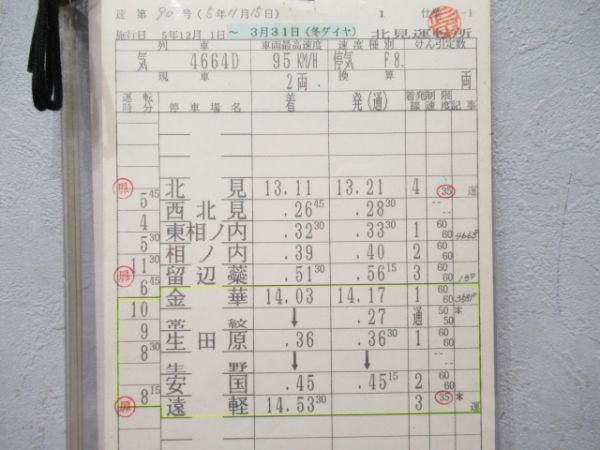 達 第 90 号 (5年11月15日) 1 -1
施行日 5年12月 1日 ～ 3月31日(冬ダイヤ) 北見運 所
列車 車両最高速度 速度種別 けん引定数
気 4664D 95 KM/H 停気 F8.
現車 2両 換算 両
運転時分 停車場名 着 発(通) 着発線 制限速度 記事
北見 13.11 13.21 4 35 運
5 45
西北見 .26 45 .28 30
4
東相ノ内 .32 30 .33 30 1 60 60
5 30
相ノ内 .39 .40 2 60 60
11 30
留辺蘂 .51 30 .56 15 3 60 60
6 45
金華 14.03 14.17 1 60 60
10
常紋 ↓ .27 通 50 50 本
9
生田原 .36 .36 30 1 60 60
8 30
生野 ↓ ↓
安国 .45 .45 15 2 60 60
8 15
遠軽 14.53 30 3 35 本 運